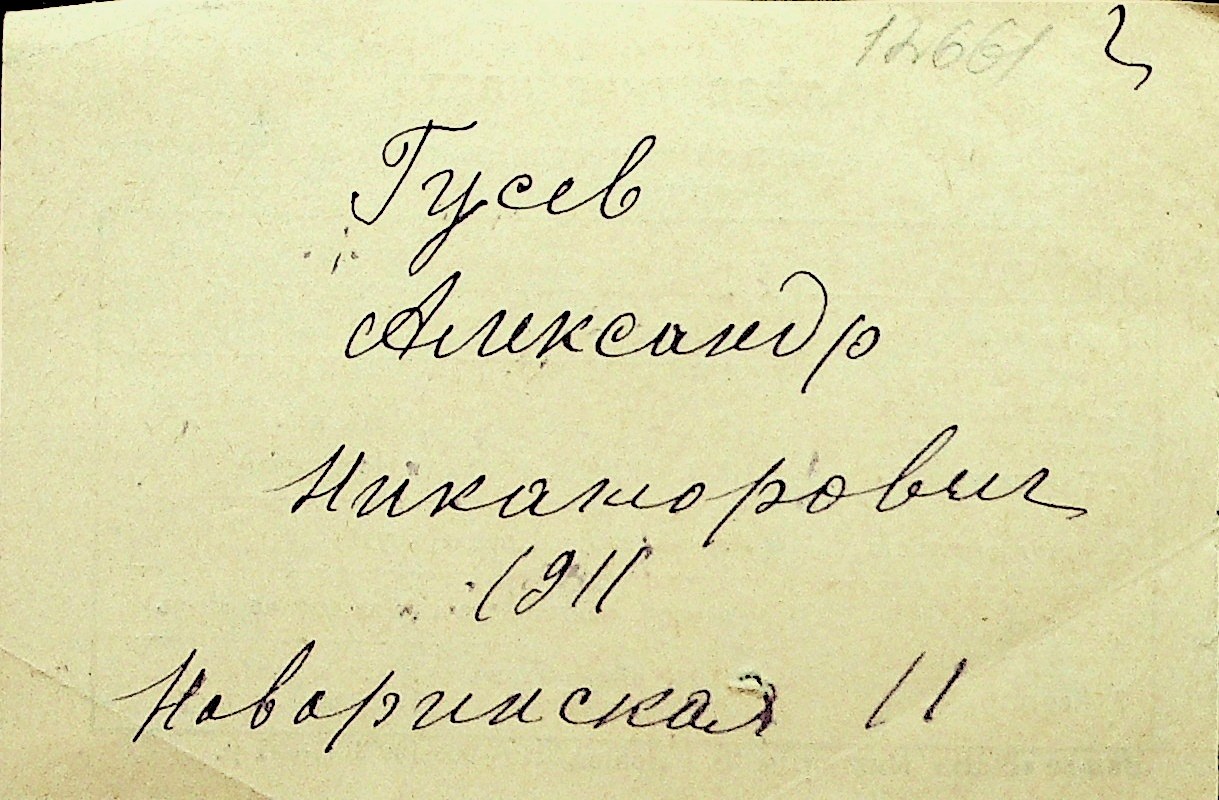 12661
Гусев
Александр
Никанорович
1911
Новоринская 11